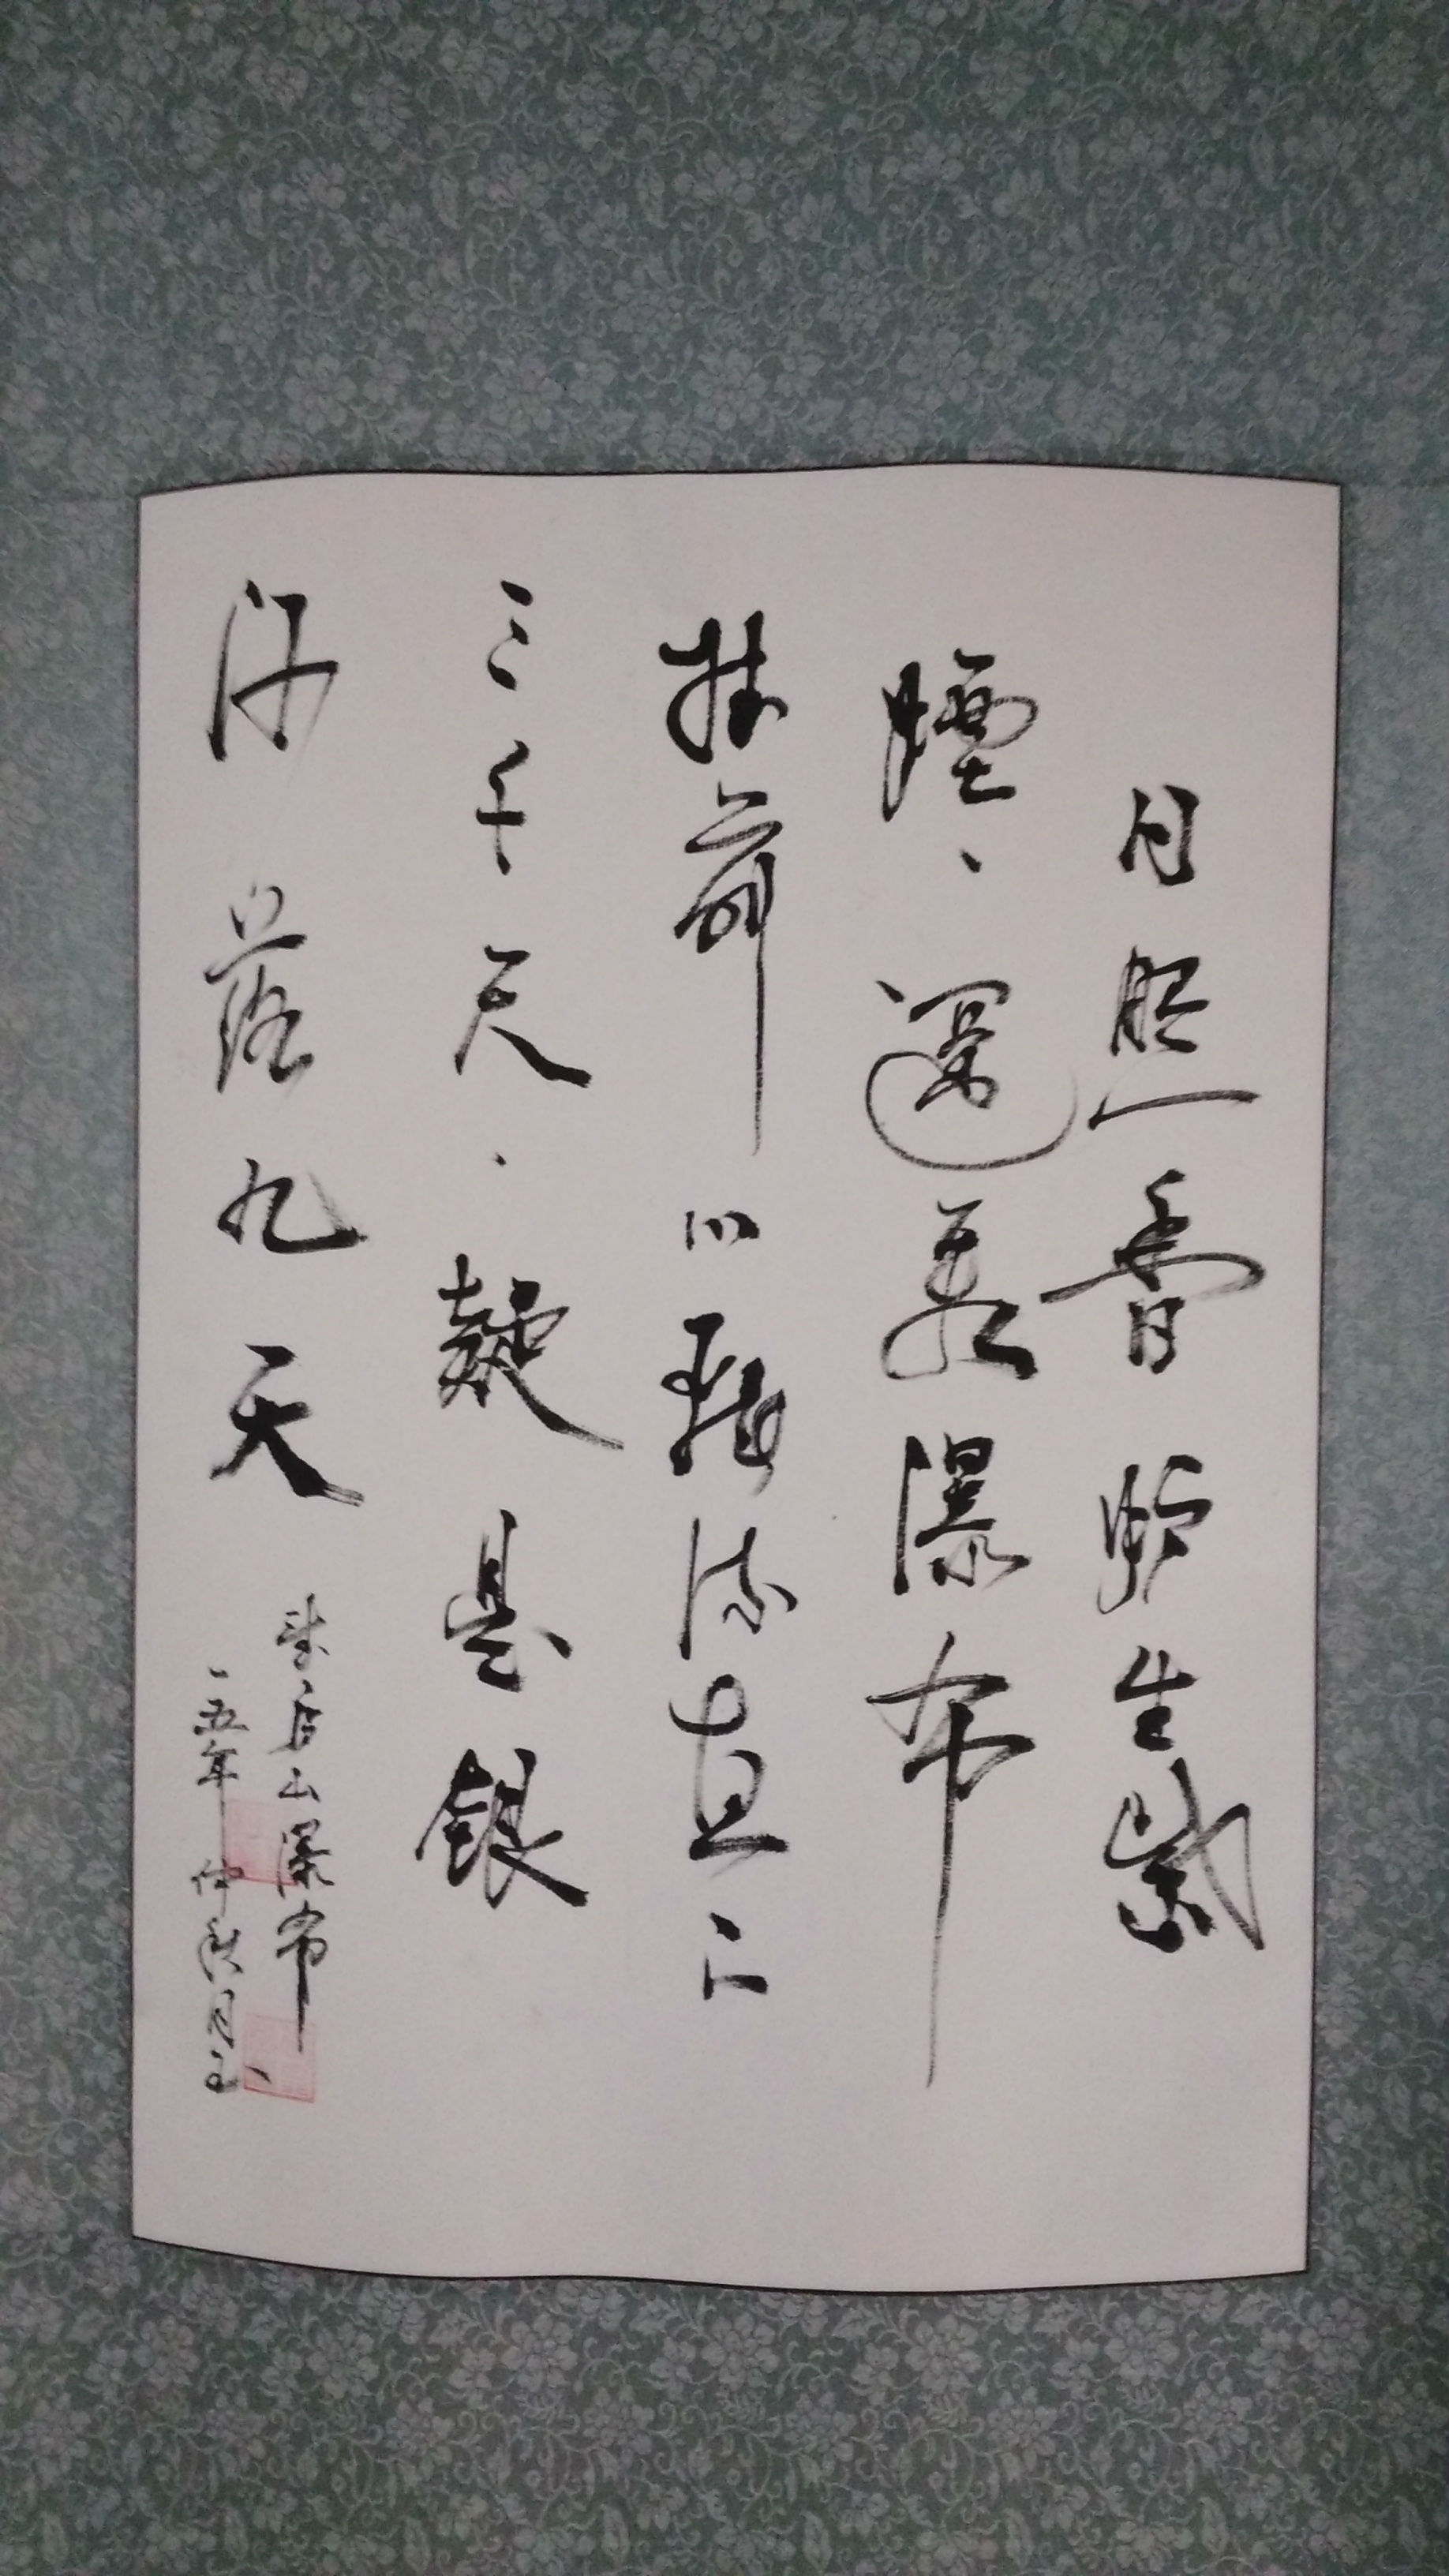 日照香炉生紫
煙、遥看瀑布
挂前川飛流直下
三千尺.疑是銀
河落九天
望庐山瀑布
一五年仲秋月